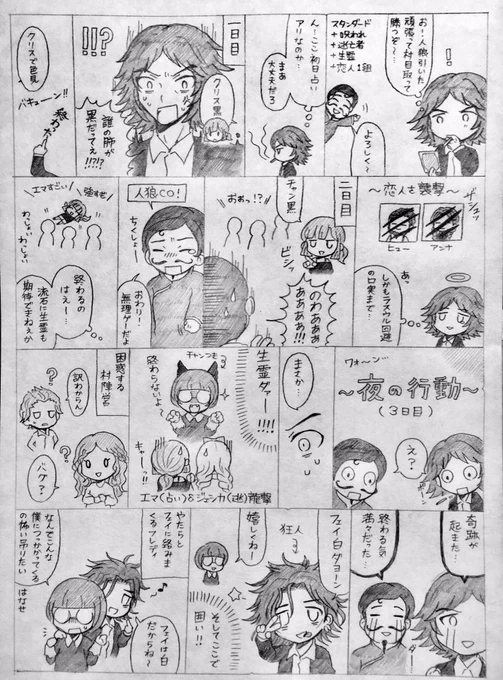 おー人狼引いた
頑張って対目取って
勝つぞ〜…
!
スタンダード
+呪われ
+逃亡者
+生霊
+恋人1組
ん!ここ初日占い
アリなのか…
まぁ
大丈夫だろ
よろしく〜
一日目
!!?
クリス黒
誰の肺が
黒だってぇ
!!?!?
クリスで色見
バキューーン!!
〜恋人を襲撃〜
ザシュッ
ヒュー
アンナ
あっ
しかもラスウル回避
の口実まで…
二日目
チャン黒
ビシッ
おおっ!?
のわぁぁぁ
ああぁぁ!!!
人狼CO!
ちくしょー
おわり!
無理ゲーだよ
エマすごい!
強すぎ!
わっしょい
わっしょい
終わるの
はぇー…
流石に生霊も
期待できねぇか
ワォーーン
〜夜の行動〜
(3日目)
え?
まさか…
生霊ダァー!!!!
チャンつも
終わらないよ〜
キャーーッ!!
エマ(占い)&ジェシカ(逃)襲撃
困惑する
村陣営
訳わからん
?
?
バケ?
奇跡が
起きた…
終わる気
満々だった…
フェイ白ダョーン
狂人
そしてここで
囲い!!
嬉しくね
やたらと
フェイに絡みま
くるフレディ
♪
フェイは白
だからね〜
なんでこんな
僕につっかかってくる
の怖い吊りたい
はなせ